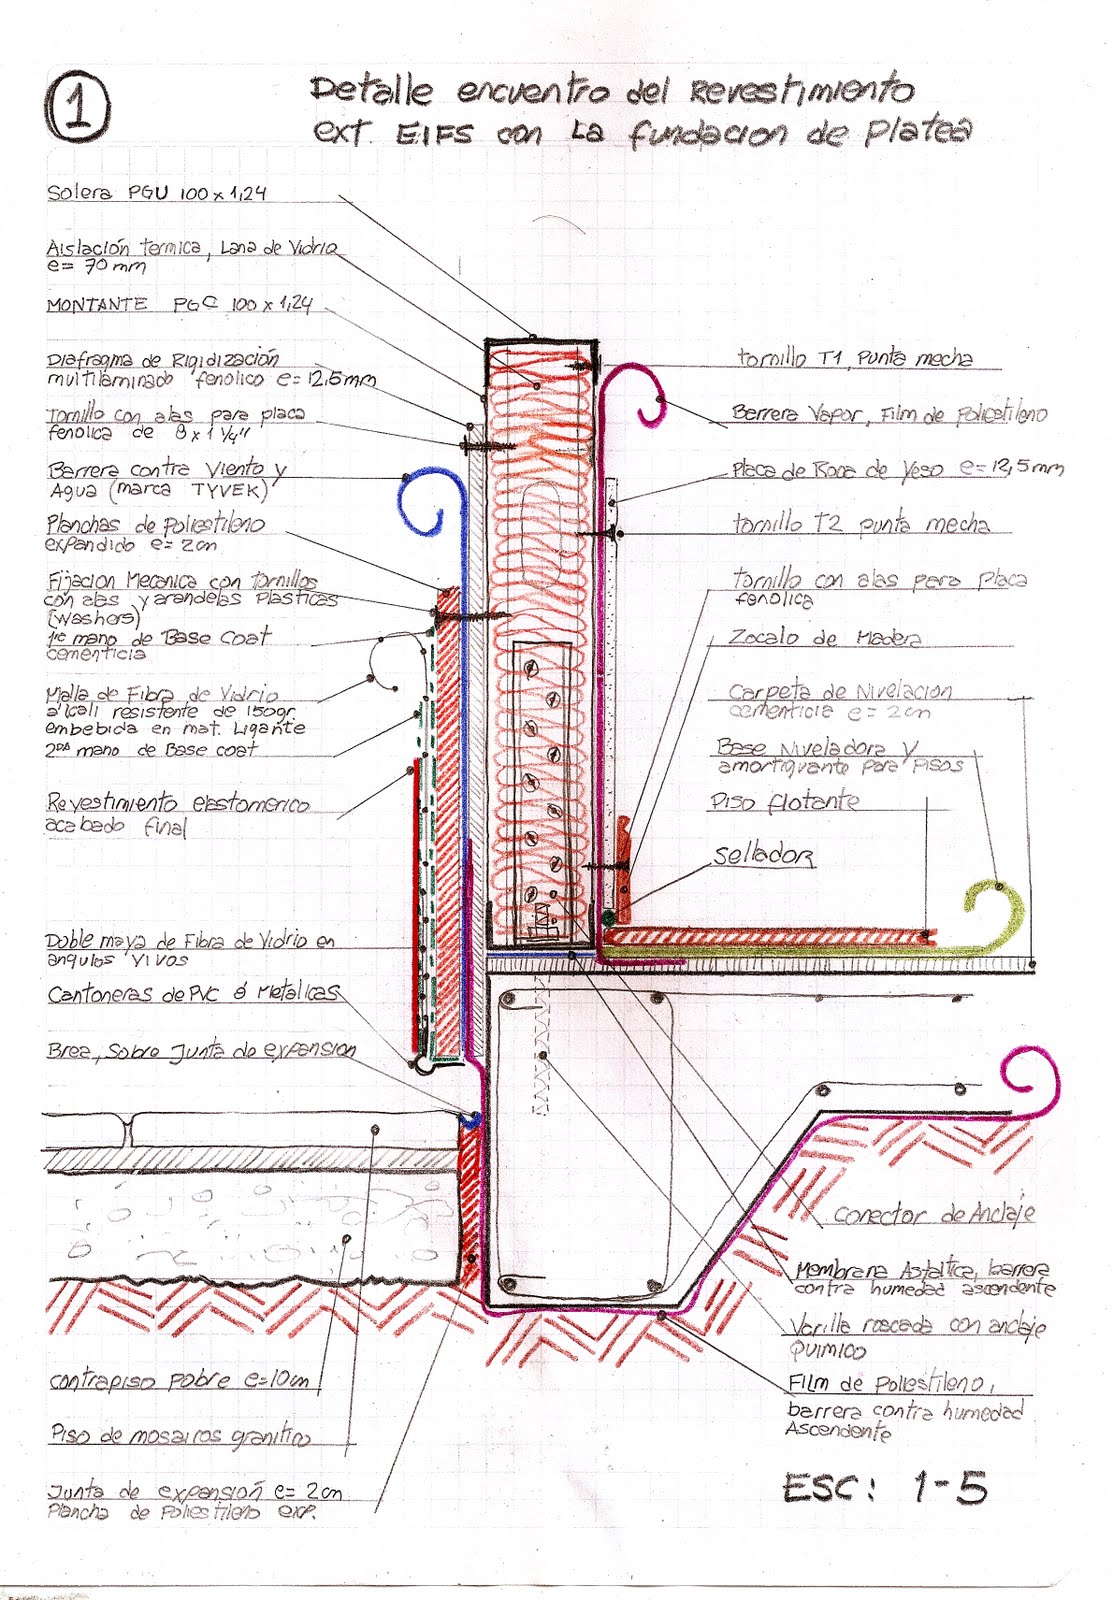 1
Detalle encuentro del Revestimiento
ext. EIFS con La fundacion de platea
Solera PGU 100 x 1,24
Aislación termica, Lana de Vidrio
e= 70 mm
MONTANTE PGC 100 x 1,24
Diafragma de Rigidización
multilaminado fenolico e= 12,5mm
Tornillo con alas para placa
fenolica de 8 x 1 1/4"
Barrera contra Viento y
Agua (marca TYVEK)
Planchas de Poliestileno
expandido e= 2cm
Fijacion Mecanica con tornillos
con alas y arandelas Plasticas
(washers)
1re mano de Base Coat
cementicia
Malla de Fibra de Vidrio
alcali resistente de 150gr.
embebida en mat. Ligante
2da mano de Base coat
Revestimiento elastomerico
acabado final
Doble maya de Fibra de Vidrio en
angulos vivos
Cantoneras de PVC ó Metalicas
Brea, Sobre Junta de expansion
contrapiso pobre e=10cm
Piso de mosaicos granitico
Junta de expansión e= 2cm
Plancha de Poliestileno exp.
tornillo T1, Punta mecha
Barrera Vapor, Film de Poliestileno
Placa de Roca de Yeso e= 12,5mm
tornillo T2 punta mecha
tornillo con alas para placa
fenolica
Zocalo de Madera
Carpeta de Nivelacion
cementicia e= 2cm
Base Niveladora y
amortiguante para Pisos
Piso flotante
sellador
conector de Anclaje
Membrana Asfaltica, barrera
contra humedad ascendente
Varilla roscada con anclaje
Quimico
Film de Poliestileno,
barrera contra humedad
Ascendente
ESC: 1-5